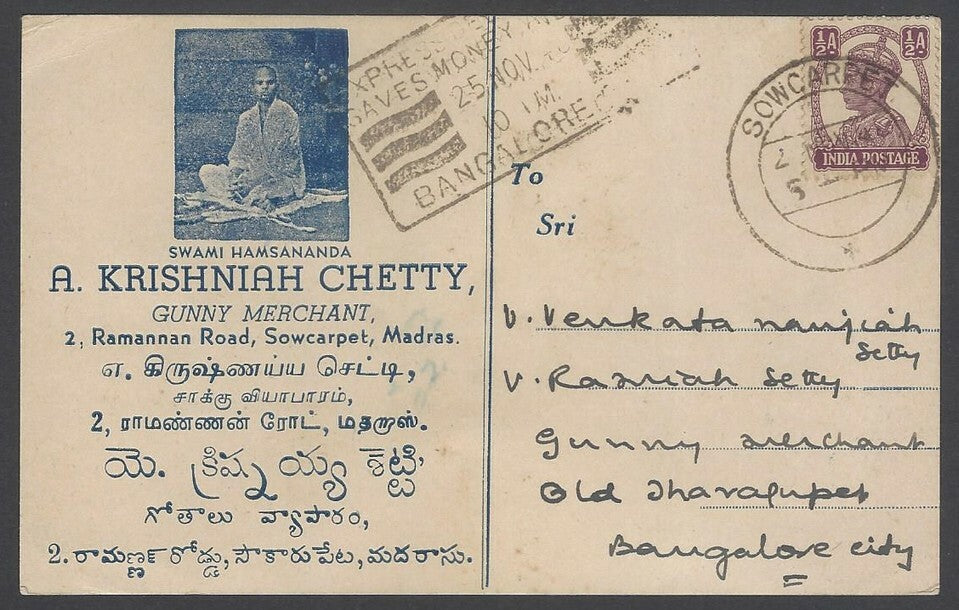 SWAMI HAMSANANDA
A. KRISHNIAH CHETTY,
GUNNY MERCHANT,
2, Ramannan Road, Sowcarpet, Madras.
எ. கிருஷ்ணய்ய செட்டி,
சாக்கு வியாபாரம்,
2, ராமண்ணன் ரோட், மதராஸ்.
యె. క్రిష్నయ్య శెట్టి,
గోతాలు వ్యాపారం,
2. రామణ్ణణ్ రోడ్డు, సౌకారుపేట, మదరాసు.
EXPRESS
SAVES MONEY AND
25 NOV.
BANGALORE
½A ½A
INDIA POSTAGE
SOWCARPET
To
Sri
V. Venkata nanjiah
Setty
V. Ramiah Setty
Gunny merchant
Old Tharagupet
Bangalore city